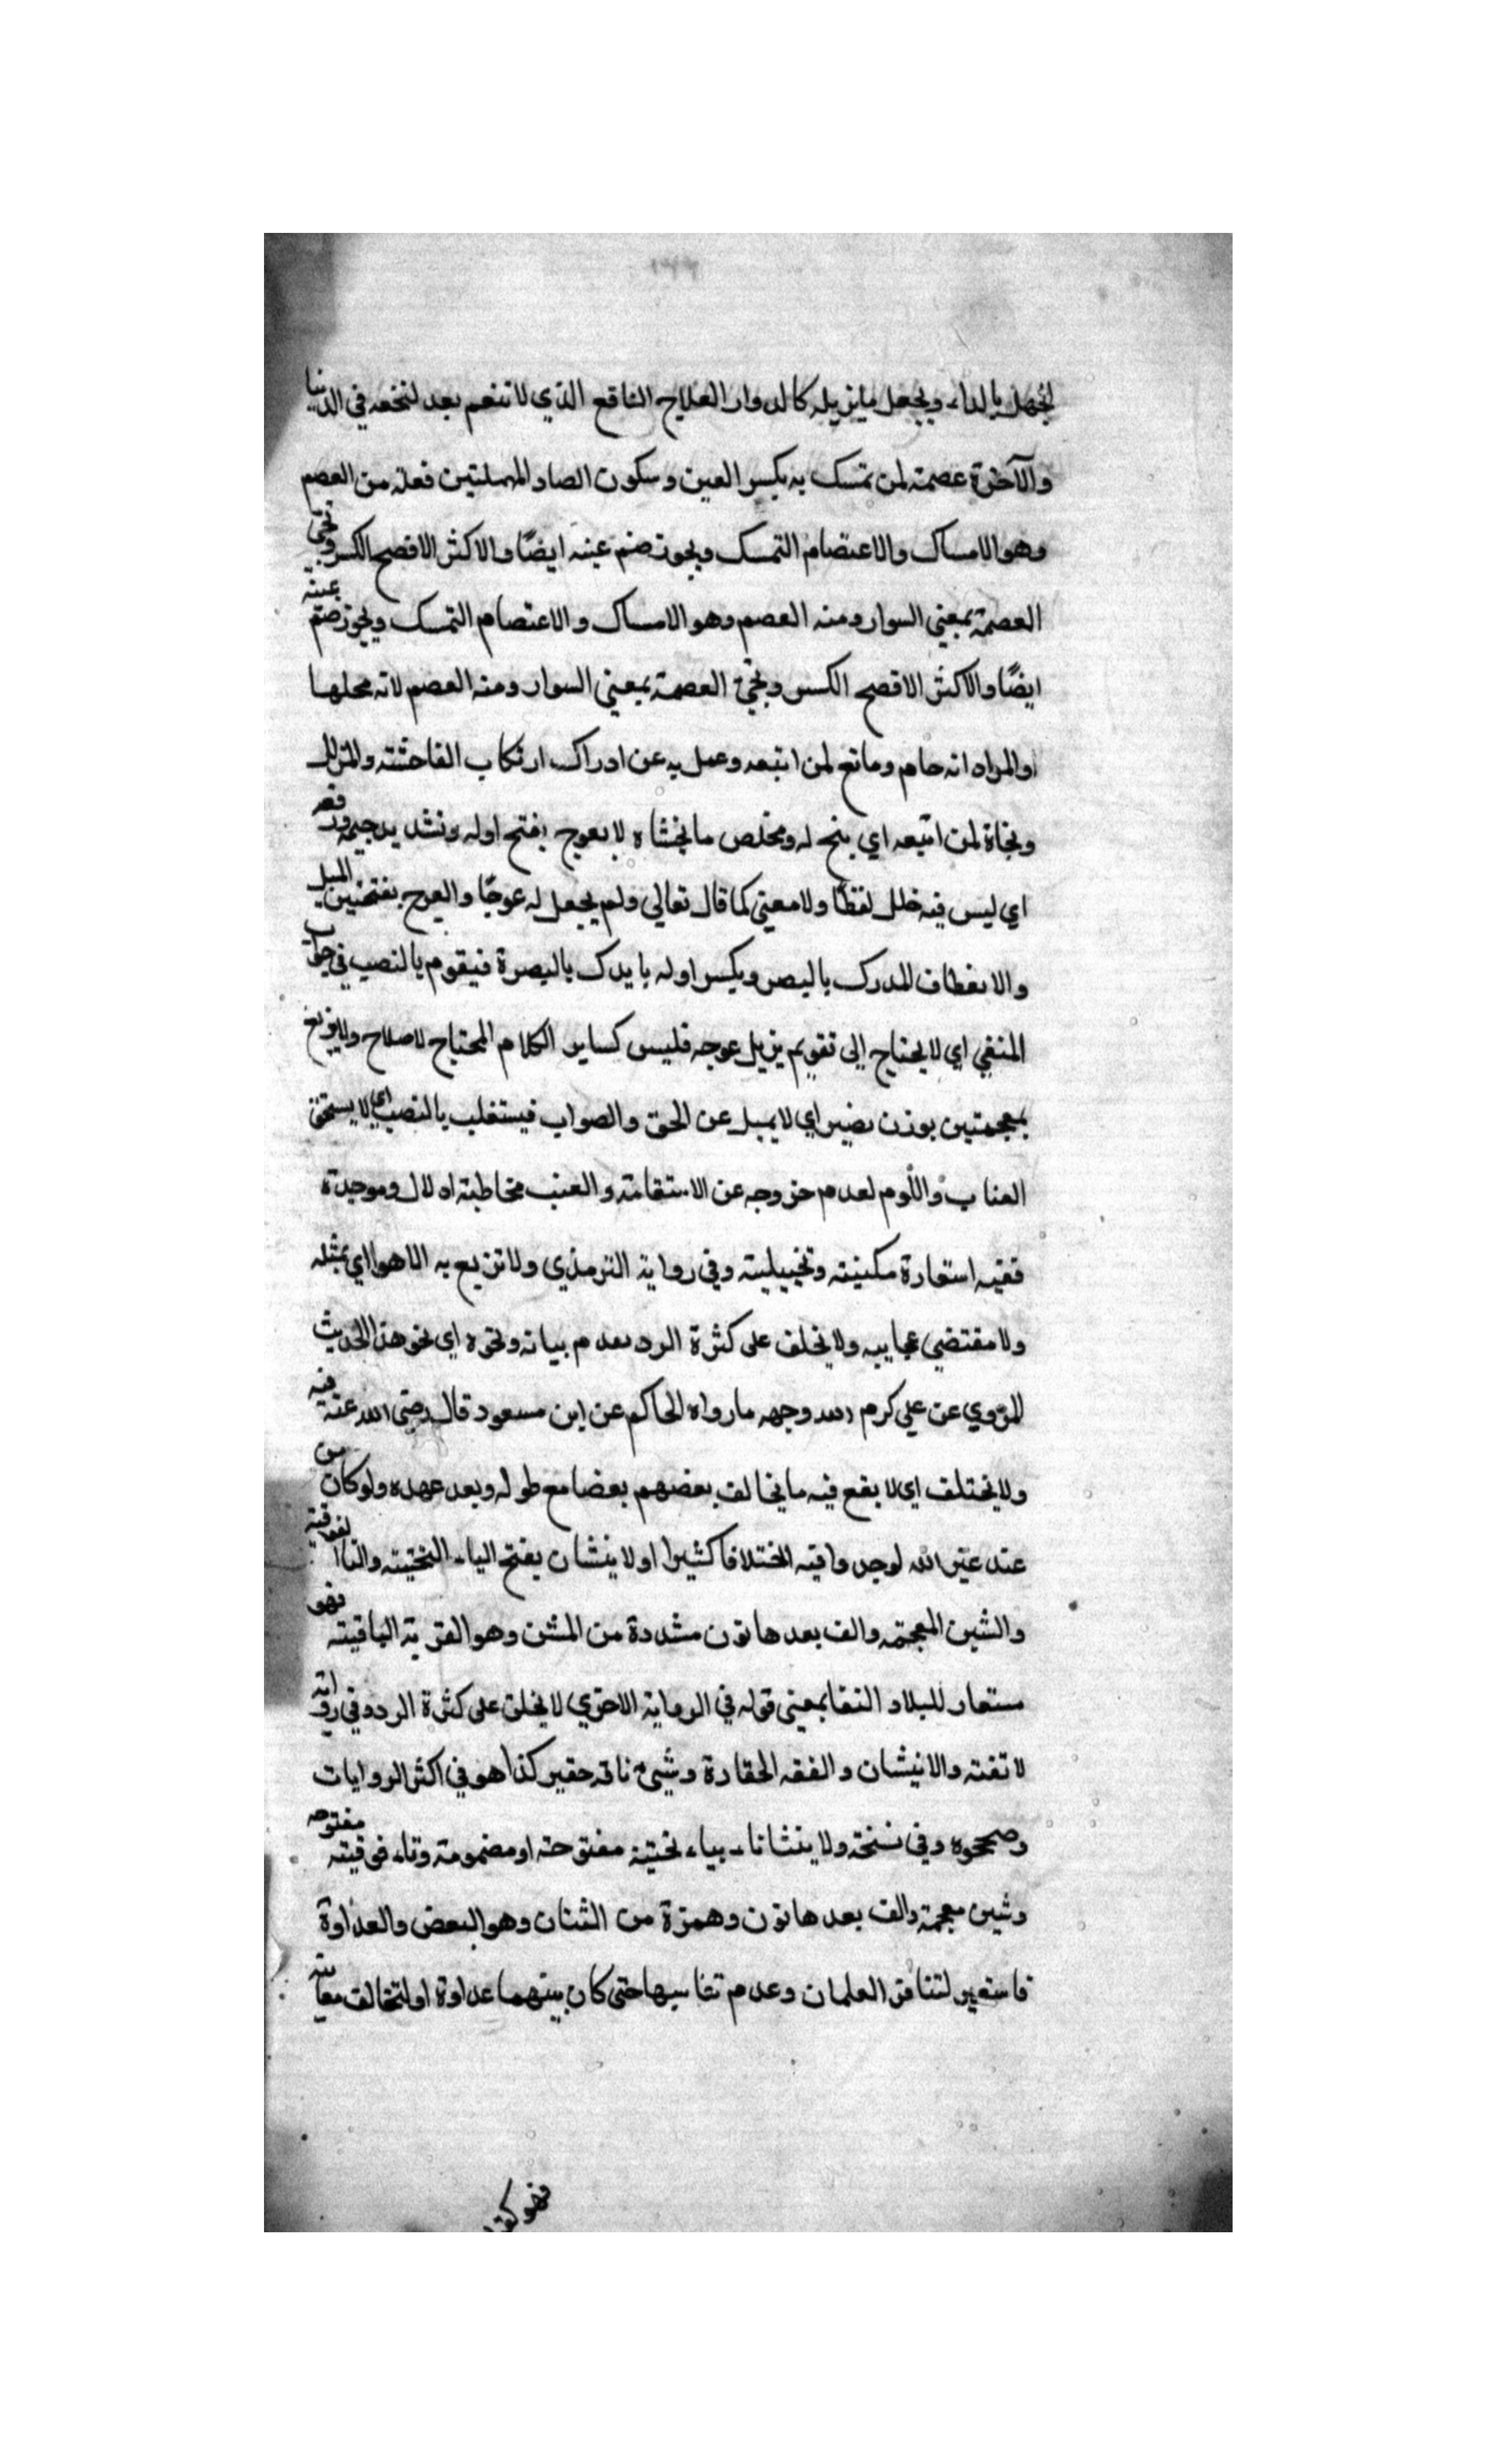 الجهل بالداء، ويجعل مايزيله كالدواء العلاج النافع الذي لا تنعم بعد لنخعه في الدنيا
والآخرة عصمة لمن تمسك به بكسر العين وسكون الصاد المهملتين فعلة من العصم
وهو الامساك والاعتصام التمسك ويجوز ضم عينه ايضًا والاكثر الافصح الكسر وتجئ
العصمة بمعني السوار ومنه العصم وهو الامساك والاعتصام التمسك ويجوز ضم عينه
ايضًا والاكثر الافصح الكسر وتجئ العصمة بمعني السوار ومنه العصم لانه محلها
والمراد انه حام ومانع لمن اتبعه وعمل به عن ادراك ارتكاب الفاحشة والزلل
ونجاة لمن اتبعه اي منج له ومخلص ما يخشاه لا يعوج بفتح اوله وتشديد جيمه ورفعه
اي ليس فيه خلل لفظًا ولا معني كما قال تعالي ولم يجعل له عوجًا والعوج بفتحتين الميل
والانعطاف المدرك بالبصر وبكسر اوله ما يدرك بالبصرة فيقوم بالنصب في جواب
المنفي اي لا يحتاج إلى تقويم يزيل عوجه فليس كساير الكلام المحتاج لاصلاح ولا يزيغ
بمعجمتين بوزن يضير اي لا يميل عن الحق والصواب فيستعتب بالنصب اي لا يستحق
العتاب واللوم لعدم خروجه عن الاستقامة والعتب مخاطبة ادلال وموجدة
ففيه استعارة مكينية وتخييلية وفي رواية الترمذي ولا تزيع به الاهوا اي بمثله
ولا مقتضي عجايبه ولا يخلف على كثرة الرد بعدم بيانه ونحوه اي نحو هذا الحديث
المروي عن علي كرم الله وجهه مارواه الحاكم عن ابن مسعود قال رضي الله عنه فيه
ولا يختلف اي لا يقع فيه ما يخالف بعضهم بعضا مع طوله وبعد عهده ولو كان من
عند غير الله لوجدوا فيه اختلافا كثيرا او لا ينشان بفتح الياء التحتية والتاا لفوقية
والشين المعجمة والف بعدها نون مشددة من الشن وهو القربة الباقية فهو
مستعار للبلاد النفا بمعني قوله في الرواية الاخري لا يخلق على كثرة الرد وفي رواية
لا تفته والانيشان والفقه الحقارة وشيئ نافه حقير كذا هو في اكثر الروايات
وصححوه وفي نسخة ولا ينشاناء بياء تحتية مفتوحة او مضمومة وتاء فوقية مفتوحه
وشين معجمة والف بعدها نون وهمزة من الشنان وهو البعض والعداوة
فاستعير لتنافر العلمان وعدم تناسبها حتى كان بينهما عداوة او لتخالف معانيه